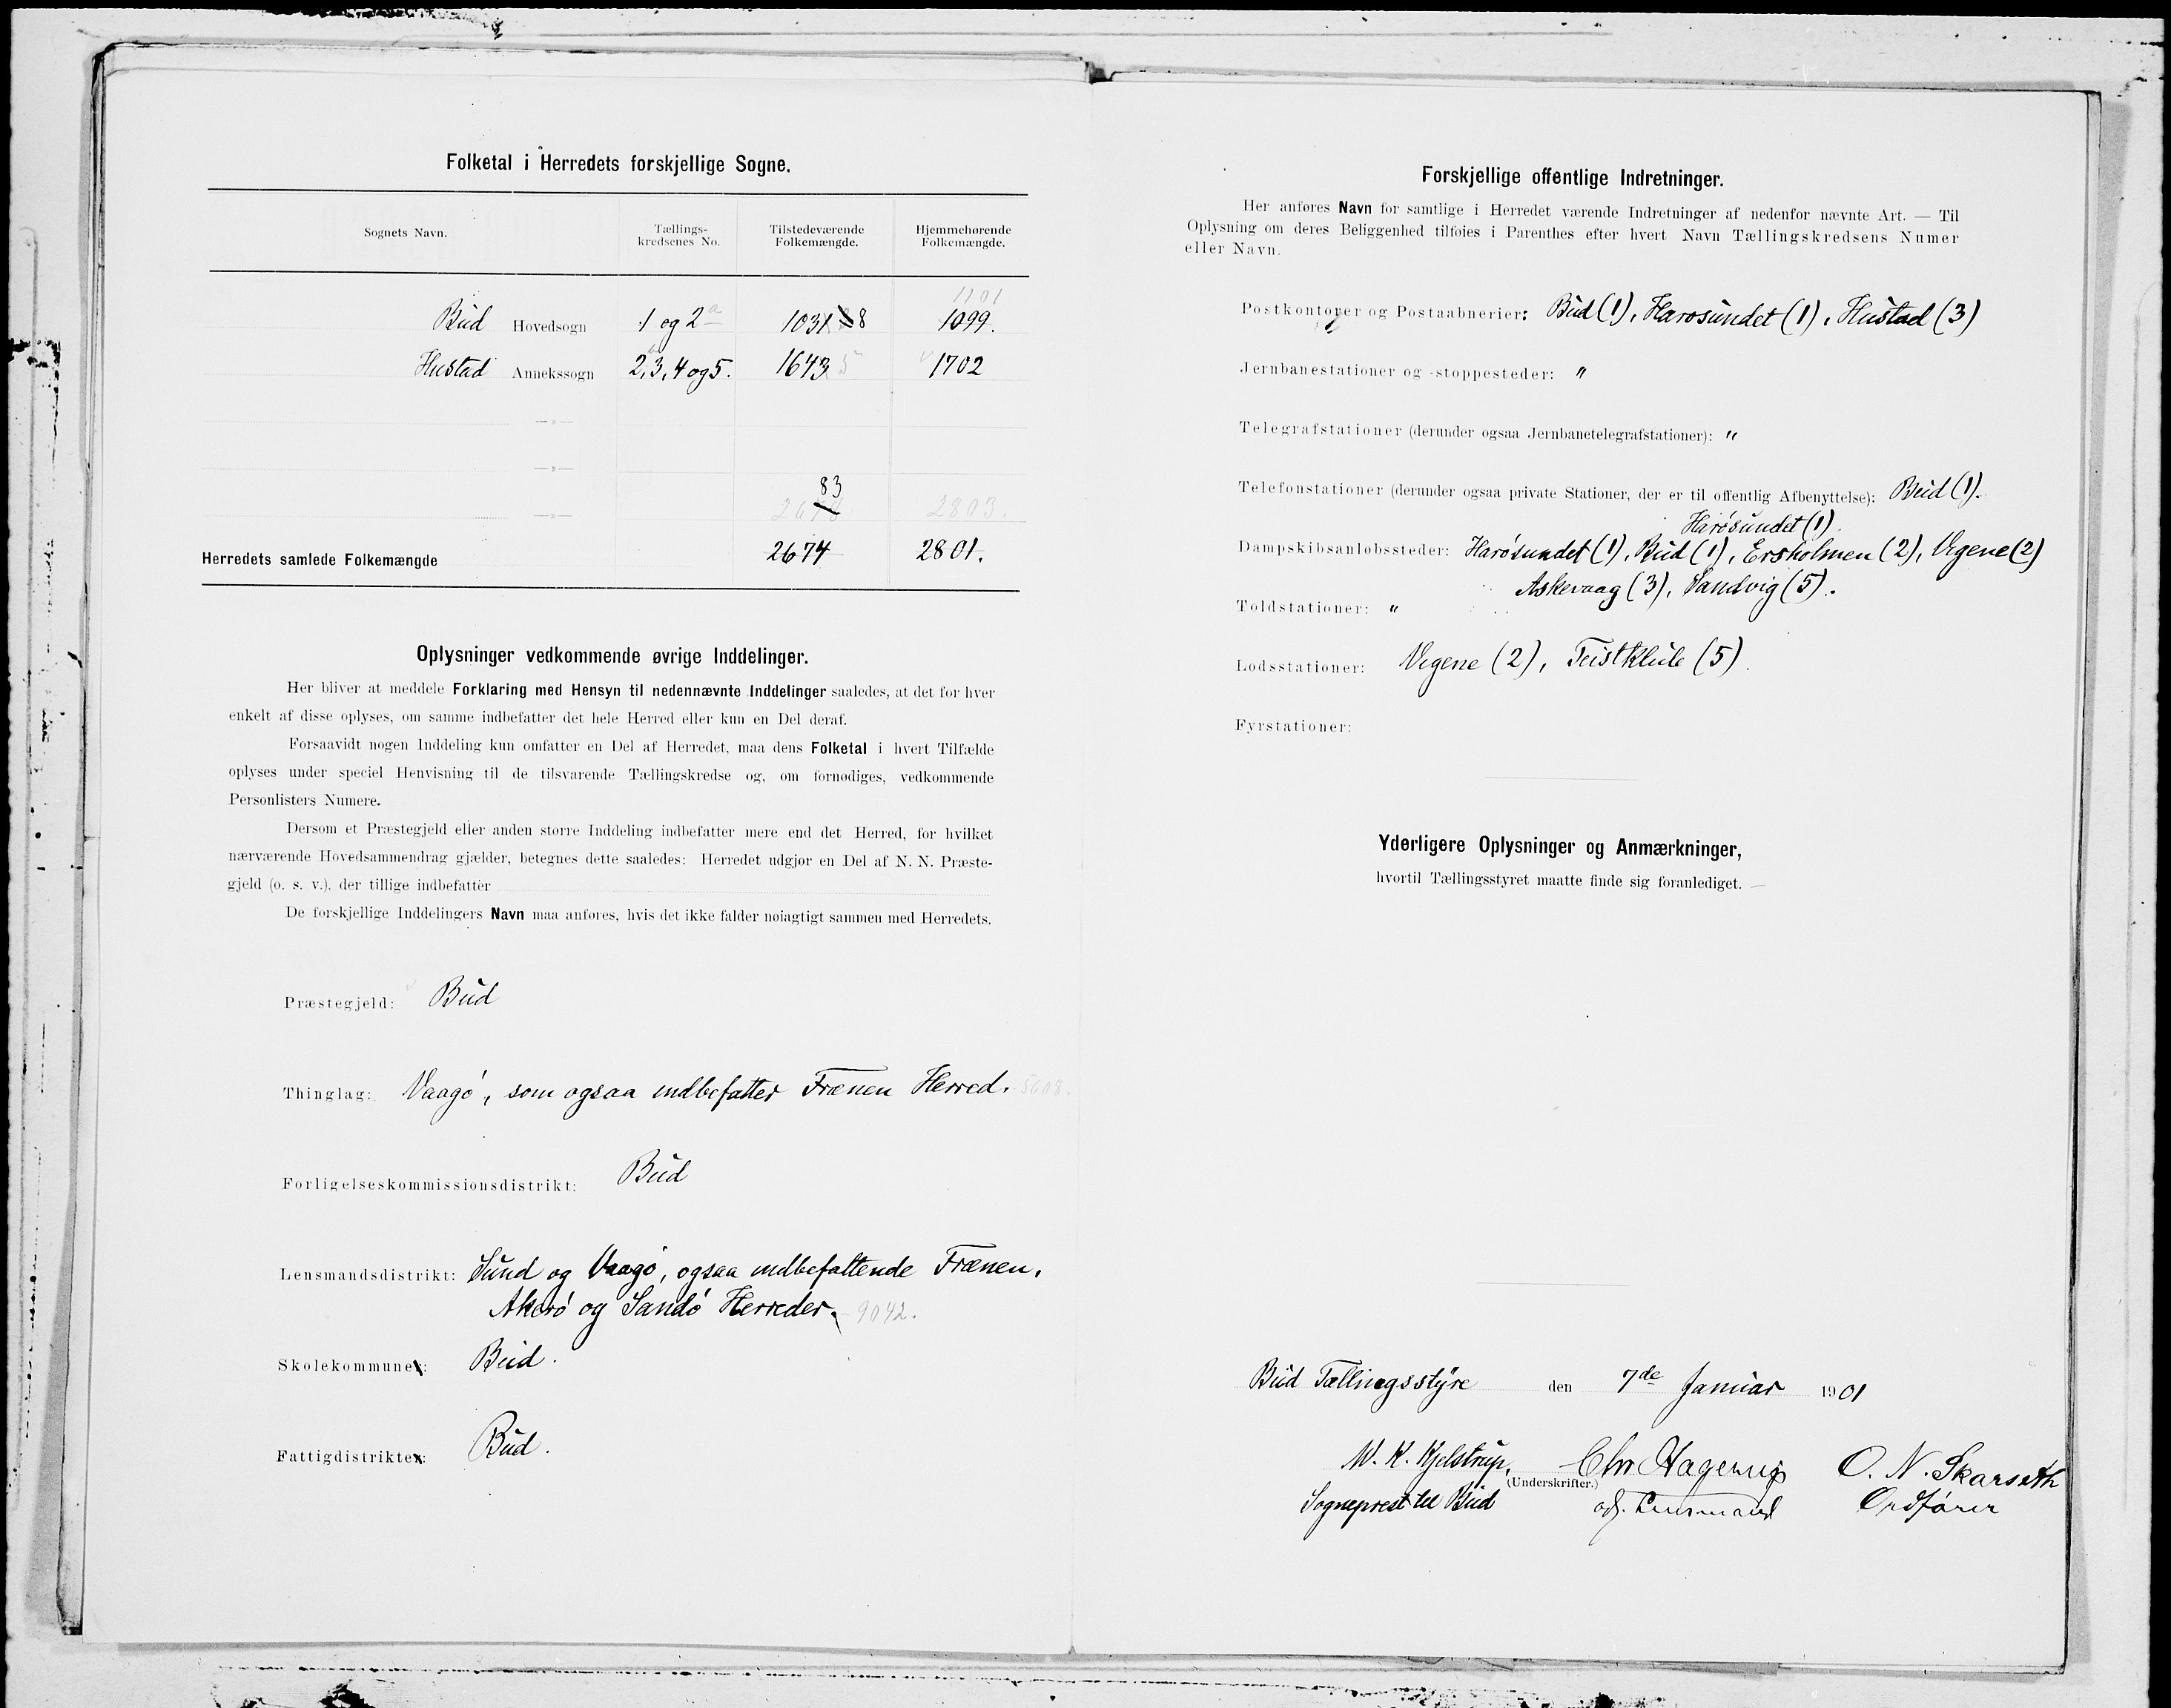 Folketal i Herredets forskjellige Sogne.
Sognets Navn. Tællings-kredsenes No. Tilstedeværende Folkemængde. Hjemmehørende Folkemængde.
1101
Bud Hovedsogn 1 og 2a 1031 8 1099.
Hustad Annekssogn 2, 3, 4 og 5. 1643 5 1702
—»—
—»—
83
—»— 2678 2803.
Herredets samlede Folkemængde 2674 2801.
Oplysninger vedkommende øvrige Inddelinger.
Her bliver at meddele Forklaring med Hensyn til nedennævnte Inddelinger saaledes, at det for hver
enkelt af disse oplyses, om samme indbefatter det hele Herred eller kun en Del deraf.
Forsaavidt nogen Inddeling kun omfatter en Del af Herredet, maa dens Folketal i hvert Tilfælde
oplyses under speciel Henvisning til de tilsvarende Tællingskredse og, om fornødiges, vedkommende
Personlisters Numere.
Dersom et Præstegjeld eller anden større Inddeling indbefatter mere end det Herred, for hvilket
nærværende Hovedsammendrag gjælder, betegnes dette saaledes: Herredet udgjør en Del af N. N. Præste-
gjeld (o. s. v.), der tillige indbefatter
De forskjellige Inddelingers Navn maa anføres, hvis det ikke falder nøiagtigt sammen med Herredets.
Præstegjeld: Bud
Thinglag: Vaagø, som ogsaa indbefatter Frænen Herred. 5608.
Forligelseskommissionsdistrikt: Bud
Lensmandsdistrikt: Sund og Vaagø, ogsaa indbefattende Frænen,
Akerø og Sandø Herreder. 9042.
Skolekommuner: Bud.
Fattigdistrikter: Bud.
Forskjellige offentlige Indretninger.
Her anføres Navn for samtlige i Herredet værende Indretninger af nedenfor nævnte Art. — Til
Oplysning om deres Beliggenhed tilføies i Parenthes efter hvert Navn Tællingskredsens Numer
eller Navn.
Postkontorer og Postaabnerier: Bud (1), Harøsundet (1), Hustad (3)
Jernbanestationer og -stoppesteder: "
Telegrafstationer (derunder ogsaa Jernbanetelegrafstationer): "
Telefonstationer (derunder ogsaa private Stationer, der er til offentlig Afbenyttelse): Bud (1).
Harøsundet (1).
Dampskibsanløbssteder: Harøsundet (1), Bud (1), Ersholmen (2), Vegene (2)
Askevaag (3), Sandvig (5).
Toldstationer: "
Lodsstationer: Vegene (2), Teistklub (5).
Fyrstationer:
Yderligere Oplysninger og Anmærkninger,
hvortil Tællingsstyret maatte finde sig foranlediget.
Bud Tællingsstyre den 7de Januar 1901
M. K. Kjelstrup, Chr Hagerup O. N. Skarseth
(Underskrifter.)
Sogneprest til Bud Lensmand Ordfører